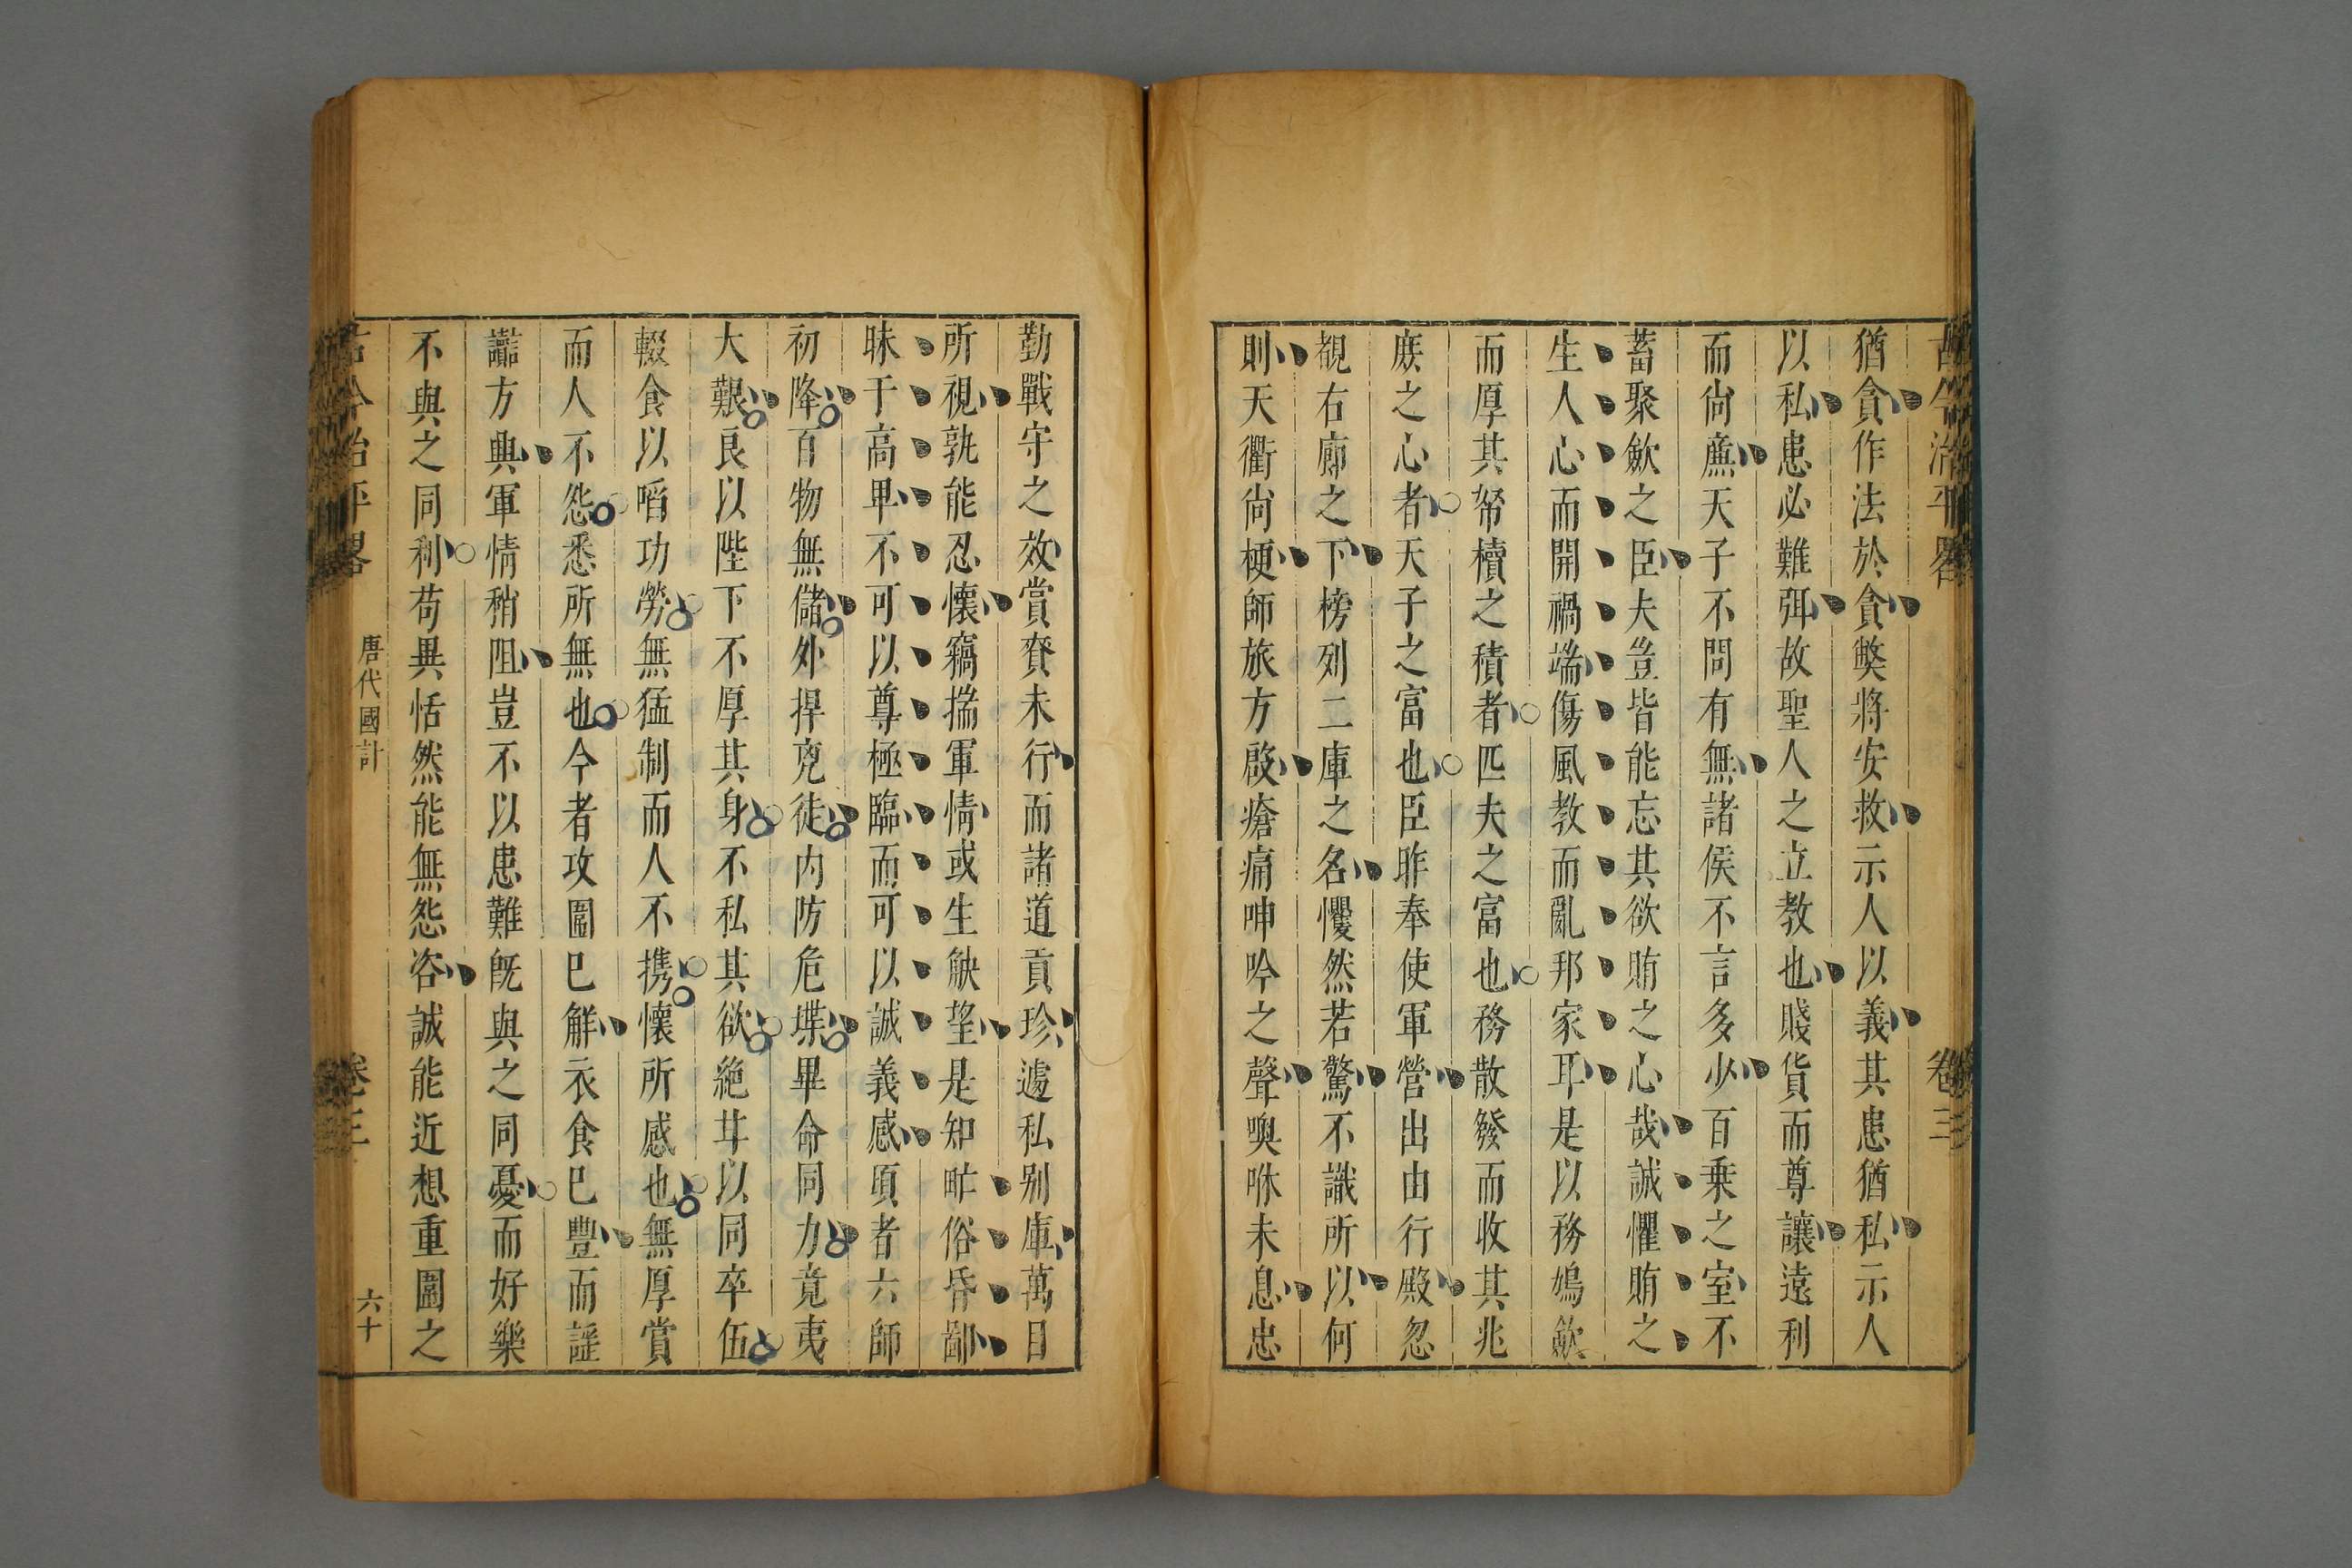 古今治平畧
卷三
猶貪作法於貪弊將安救示人以義其患猶私示人
以私患必難弭故聖人之立教也賤貨而尊讓遠利
而尙廉天子不問有無諸侯不言多少百乗之室不
蓄聚歛之臣夫豈皆能忘其欲賄之心哉誠懼賄之
生人心而開禍端傷風教而亂邦家耳是以務鳩歛
而厚其帑櫝之積者匹夫之富也務散發而收其兆
庶之心者天子之富也臣昨奉使軍營出由行殿忽
覩右廊之下榜列二庫之名懼然若驚不識所以何
則天衢尙梗師旅方殷瘡痛呻吟之聲噢咻未息忠
勤戰守之效賞賚未行而諸道貢珍遽私别庫萬目
所視孰能忍懐竊揣軍情或生觖望是知甿俗昏鄙
昧于高卑不可以尊極臨而可以誠義感頃者六師
初降百物無儲外捍兇徒内防危堞畢命同力竟夷
大艱良以陛下不厚其身不私其欲絶甘以同卒伍
輟食以㗖功勞無猛制而人不携懐所感也無厚賞
而人不怨悉所無也今者攻圍已解衣食已豐而謡
讟方興軍情稍阻豈不以患難旣與之同憂而好樂
不與之同利苟異恬然能無怨咨誠能近想重圍之
古今治平畧
唐代國計
卷三
六十